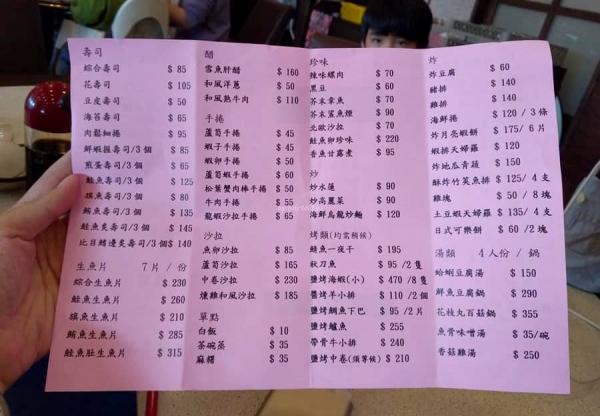 壽司
綜合壽司 $ 85
花壽司 $ 105
豆皮壽司 $ 50
海苔壽司 $ 65
肉鬆細捲 $ 95
鮮蝦握壽司/3個 $ 85
煎蛋壽司/3個 $ 65
鮭魚壽司/3個 $ 125
旗魚壽司/3個 $ 80
鮪魚壽司/3個 $ 135
鮭魚炙壽司/3個 $ 145
比目鰭邊炙壽司/3個 $ 140
生魚片 7片/份
綜合生魚片 $ 230
鮭魚生魚片 $ 260
旗魚生魚片 $ 210
鮪魚生魚片 $ 285
鮭魚肚生魚片 $ 315
醋
雪魚肝醋 $ 160
和風洋蔥 $ 50
和風熟牛肉 $ 110
手捲
蘆筍手捲 $ 45
蝦子手捲 $ 45
蝦卵手捲 $ 50
松葉蟹肉棒手捲 $ 50
牛肉手捲 $ 55
龍蝦沙拉手捲 $ 65
沙拉
魚卵沙拉 $ 85
蘆筍沙拉 $ 165
中卷沙拉 $ 230
燻雞和風沙拉 $ 185
單點
白飯 $ 10
茶碗蒸 $ 35
麻糬 $ 35
珍味
辣味螺肉 $ 70
黑豆 $ 60
芥末章魚 $ 70
芥末鯊魚煙 $ 90
北歐沙拉 $ 70
鮭魚卵珍味 $ 220
香魚甘露煮 $ 95
炒
炒水蓮 $ 90
炒高麗菜 $ 90
海鮮烏龍炒麵 $ 120
烤類(均需稍候)
鯖魚一夜干 $ 195
秋刀魚 $ 95/2隻
鹽烤海蝦(小) $ 470/8隻
醬烤羊小排 $ 110/2個
鹽烤鯛魚下巴 $ 95/2片
鹽烤鱸魚 $ 255
帶骨牛小排 $ 240
鹽烤中卷(須等候) $ 210
炸
炸豆腐 $ 60
豬排 $ 140
雞排 $ 140
海鮮捲 $ 120/3條
炸月亮蝦餅 $ 175/6片
蝦排天婦羅 $ 120
炸地瓜青蔬 $ 150
酥炸竹筴魚排 $ 125/4支
雞塊 $ 50/8塊
土豆蝦天婦羅 $ 135/4支
日式可樂餅 $ 60/2塊
湯類 4人份/鍋
蛤蜊豆腐湯 $ 150
鮮魚豆腐鍋 $ 290
花枝丸百菇鍋 $ 355
魚骨味噌湯 $ 35/碗
香菇雞湯 $ 250